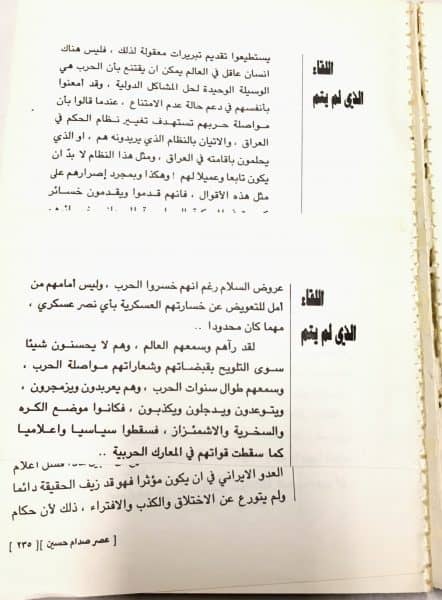 اللقاء
الذي لم يتم
يستطيعوا تقديم تبريرات معقولة لذلك ، فليس هناك
انسان عاقل في العالم يمكن ان يقتنع بأن الحرب هي
الوسيلة الوحيدة لحل المشاكل الدولية ، وقد أمعنوا
بأنفسهم في دعم حالة عدم الامتناع ، عندما قالوا بأن
مواصلة حربهم تستهدف تغيير نظام الحكم في
العراق ، والاتيان بالنظام الذي يريدونه هم ، او الذي
يحلمون باقامته في العراق ، ومثل هذا النظام لا بدّ ان
يكون تابعا وعميلا لهم ! وهكذا وبمجرد إصرارهم على
مثل هذه الأقوال ، فانهم قدموا ويقدمون خسائر
اللقاء
الذي لم يتم
عروض السلام رغم انهم خسروا الحرب ، وليس أمامهم من
أمل للتعويض عن خسارتهم العسكرية بأي نصر عسكري ،
مهما كان محدودا ..
لقد رآهم وسمعهم العالم ، وهم لا يحسنون شيئا
سوى التلويح بقبضاتهم وشعاراتهم مواصلة الحرب ،
وسمعهم طوال سنوات الحرب ، وهم يعربدون ويزمجرون ،
ويتوعدون ويدجلون ويكذبون ، فكانوا موضع الكره
والسخرية والاشمئزاز ، فسقطوا سياسيا واعلاميا
كما سقطت قواتهم في المعارك الحربية ..
فشل اعلام
العدو الايراني في ان يكون مؤثرا فهو قد زيف الحقيقة دائما
ولم يتورع عن الاختلاق والكذب والافتراء ، ذلك لأن حكام
[ عصر صدام حسين ][ ٢٣٥ ]